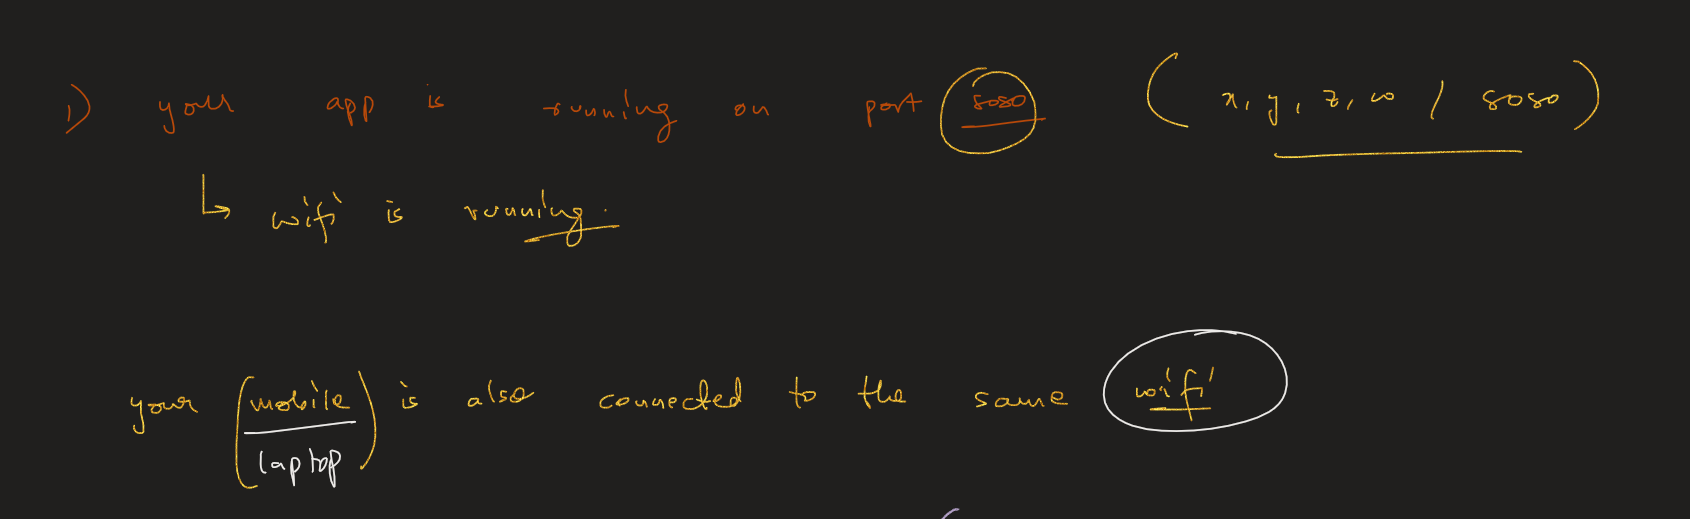 1) your app is running on port 5050 (x, y, z, w / 5050)
↳ wifi is running.
your (mobile / laptop) is also connected to the same wifi